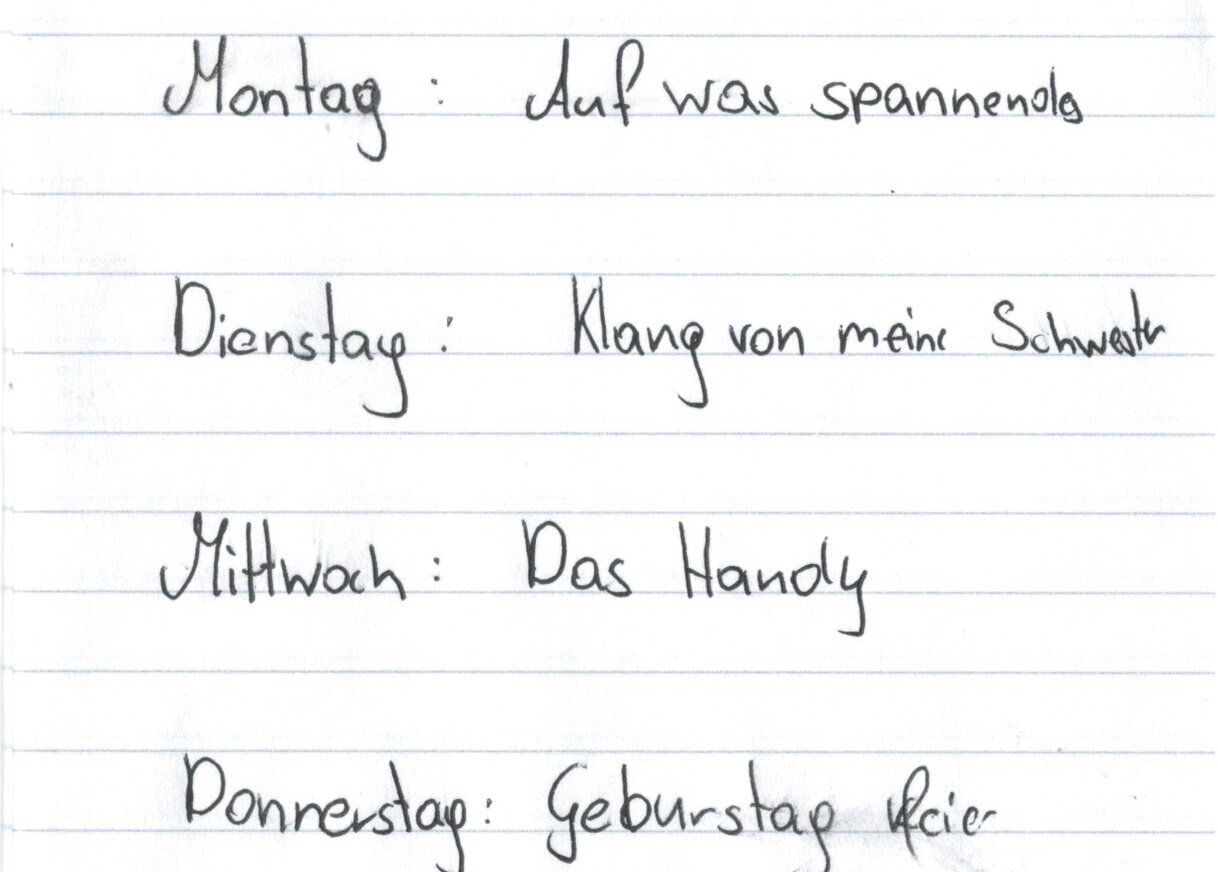 Montag : Auf was spannendes
Dienstag : Klang von meine Schwester
Mittwoch : Das Handy
Donnerstag : Geburstag feier